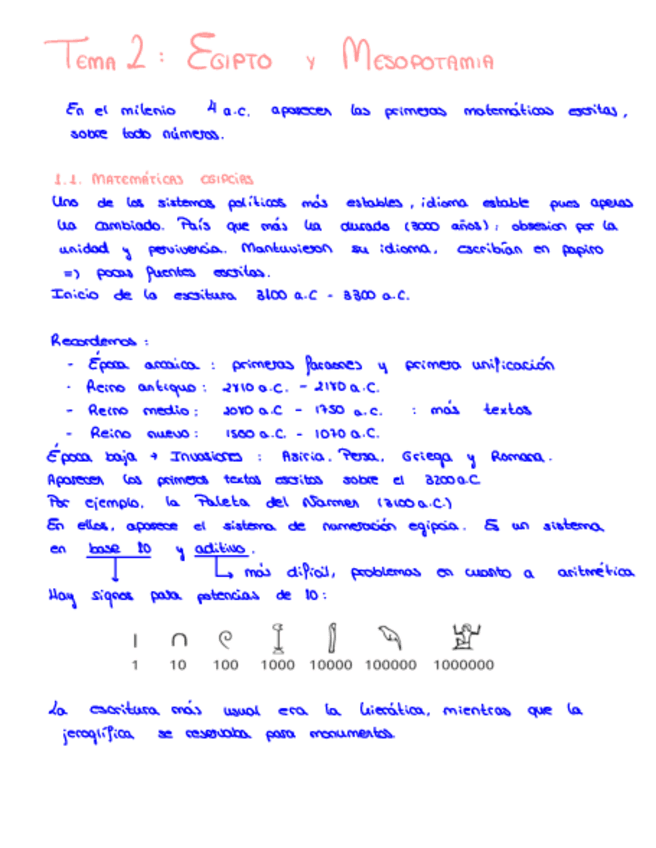 TEMA 2: EGIPTO Y MESOPOTAMIA
En el milenio 4 a.c. aparecen las primeras matemáticas escritas,
sobre todo números.
1.1. MATEMÁTICAS EGIPCIAS
Uno de los sistemas políticos más estables, idioma estable pues apenas
ha cambiado. País que más ha durado (3000 años); obsesion por la
unidad y pervivencia. Mantuvieron su idioma, escribían en papiro
=) pocas fuentes escritas.
Inicio de la escritura 3100 a.C - 3300 a.C.
Recordemos:
- Época arcaica : primeros faraones y primera unificación
- Reino antiguo: a.C. - a.C.
- Reino medio: a.C - 1750 a.c. : más textos
- Reino nuevo: 1500 a.C. - 1070 a.C.
Época baja → Invasiones : Asiria, Persa, Griega y Romana.
Aparecen los primeros textos escritos sobre el 3200 a.C
Por ejemplo, la Paleta del Narmer (3100 a.C.)
En ellos, aparece el sistema de numeración egipcia. Es un sistema
en base 10 y aditivo.
↳ más difícil, problemas en cuanto a aritmética
Hay signos para potencias de 10:
1 10 100 1000 10000 100000 1000000
La escritura más usual era la hierática, mientras que la
jeroglífica se reservaba para monumentos